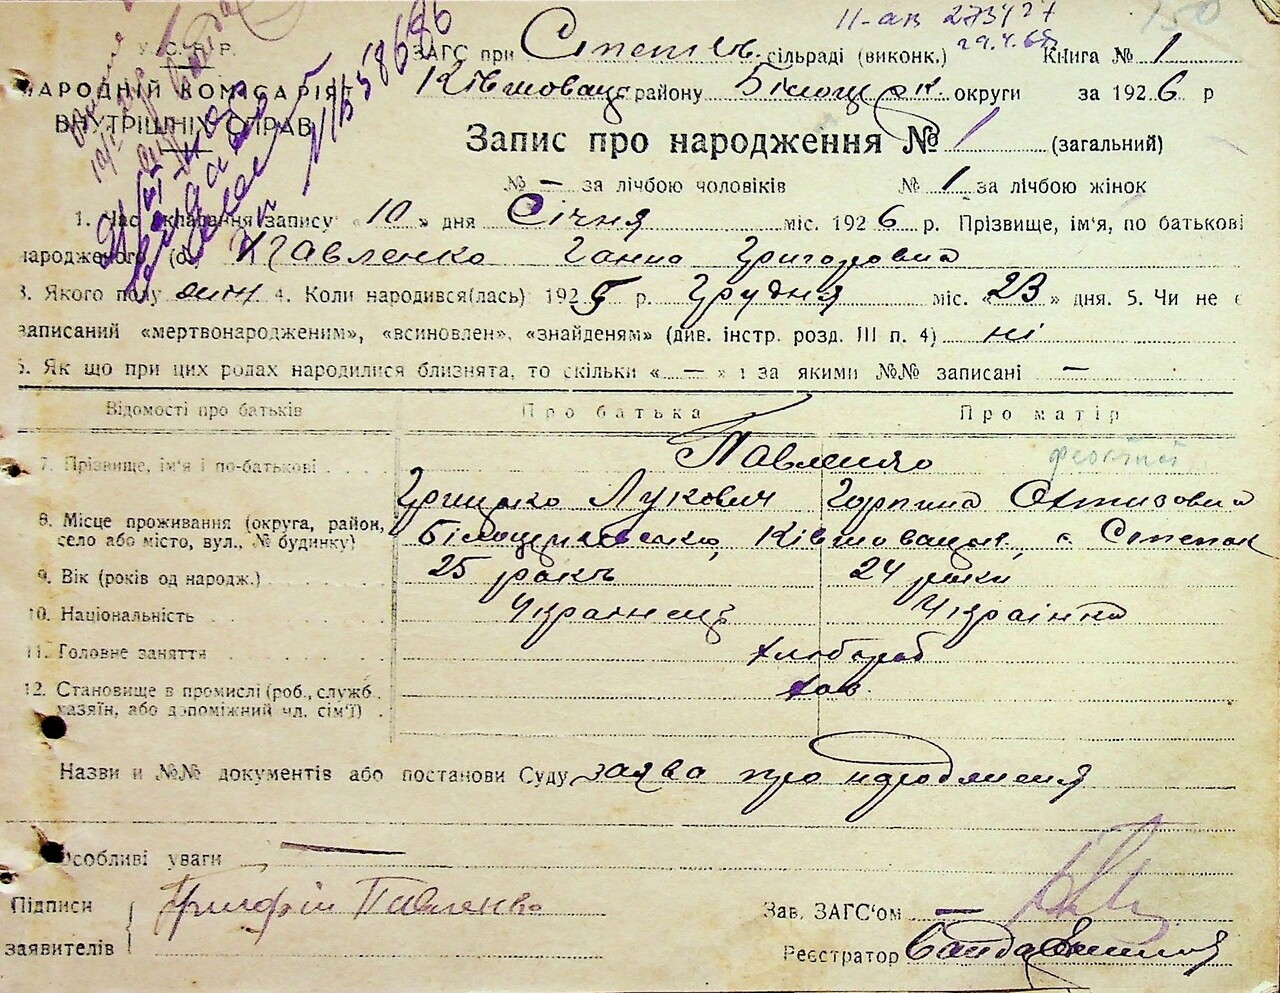 ІІ-ав 273427
29.4.65
У.С.Р.Р.
НАРОДНІЙ КОМІСАРІЯТ
ВНУТРІШНІХ СПРАВ
ЗАГС при Степков. сільраді (виконк.) Книга № 1
Ківшовацьк району Білоцерк. округи за 1926 р
Запис про народження № 1 (загальний)
№ — за лічбою чоловіків № 1 за лічбою жінок
1. Час складання запису: «10» дня Січня міс. 1926 р. Прізвище, ім'я, по батькові
народженого (ої) Павленко Ганна Григоровна
3. Якого полу жін 4. Коли народився(лась) 1925 р. Грудня міс. «23» дня. 5. Чи не є
записаний «мертвонародженим», «всиновлен», «знайденям» (див. інстр. розд. III п. 4) ні
6. Як що при цих родах народилися близнята, то скільки « — » і за якими №№ записані —
Відомості про батьків Про батька Про матір
7. Прізвище, ім'я і по-батькові Павленко
Грицько Лукович Горпина
8. Місце проживання (округа, район, село або місто, вул., № будинку) Білоцерковська, Ківшовацьк, с Степок
9. Вік (років од народж.) 25 рокъ 24 роки
10. Національність Українець Українка
11. Головне заняття хлібороб
12. Становище в промислі (роб., служб., хазяїн, або допоміжний чл. сім'ї) хаз.
Назви и №№ документів або постанови Суду заява про народження
Особливі уваги —
Підписи заявителів Павленко
Зав. ЗАГС'ом —
Реєстратор